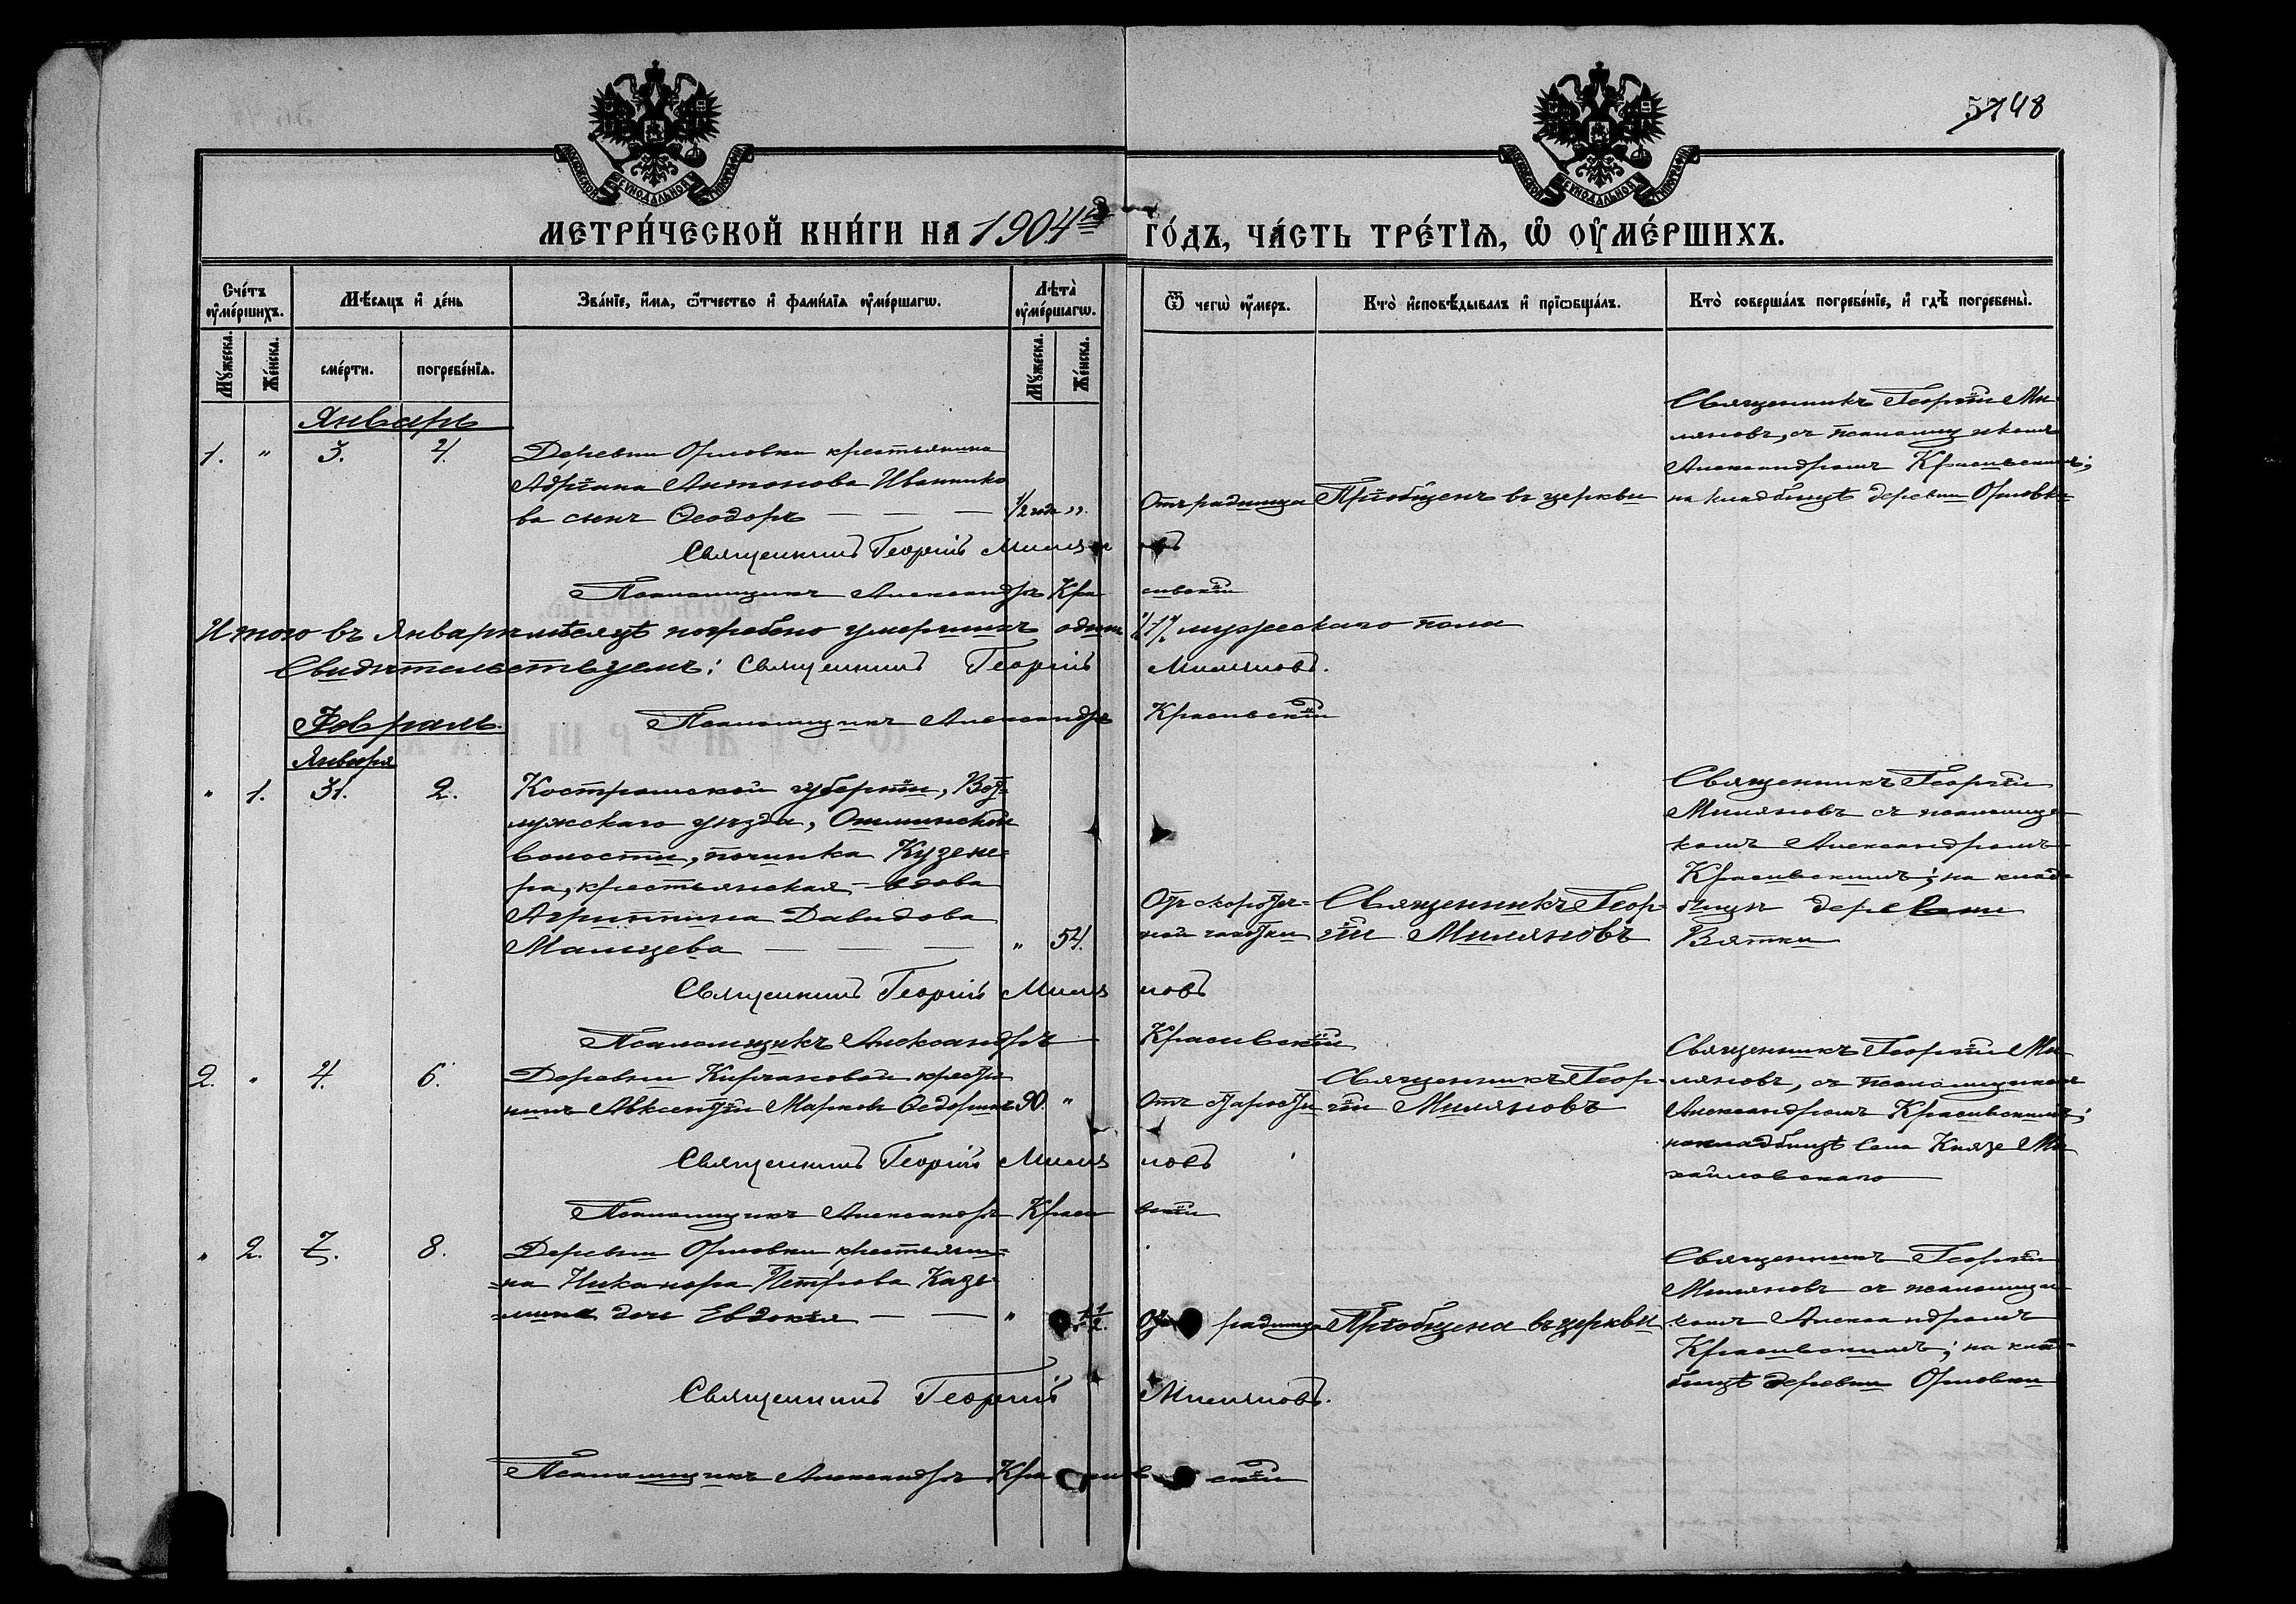 57 48
МОСКОВСКОЙ СѴНОДАЛЬНОЙ ТИПОГРАФІИ
МОСКОВСКОЙ СѴНОДАЛЬНОЙ ТИПОГРАФІИ
МЕТРИ́ЧЕСКОЙ КНИ́ГИ НА 1904й ГО́ДЪ, ЧА́СТЬ ТРЕ́ТІѦ, Ѡ҆ ОУ҆МЕ́РШИХЪ.
Сче́тъ оу҆ме́ршихъ.
Мѣ́сяцъ и҆ де́нь
Зва́ніе, и҆́мѧ, ѻ҆́тчество и҆ фами́ліѧ оу҆ме́ршагѡ.
Лѣта̀ оу҆ме́ршагѡ.
Ѿ чегѡ̀ оу҆́меръ.
Кто̀ и҆сповѣ́дывалъ и҆ прїѡбща́лъ.
Кто̀ соверша́лъ погребе́ніе, и҆ гдѣ̀ погребены̀.
Мꙋ́жеска.
Же́нска.
сме́рти.
погребе́нїѧ.
Мꙋ́жеска.
Же́нска.
Январь
1. " 3. 4.
Деревни Орловки крестьянина
Адріана Антонова Иванико
ва сынъ Ѳеодоръ — — —
1/2 года "
Отъ родимца
Пріобщенъ въ церкви
Священникъ Георгій Ми
ляновъ, съ псаломщикомъ
Александромъ Красивскимъ;
на кладбищѣ деревни Орловки
Священникъ Георгій Миляновъ
Псаломщикъ Александръ Красивскій
Итого въ Январѣ мѣсяцѣ погребено умершихъ одинъ "1" мужескаго пола
Свидѣтельствуемъ: Священникъ Георгій Миляновъ.
Псаломщикъ Александръ Красивскій
Февраль.
Января
" 1. 31. 2.
Костромской губерніи, Вет-
лужскаго уѣзда,
волости, починка Кузене-
ра, крестьянская вдова
Агриппина Давидова
Мальцева — — —
" 54.
Отъ скоротеч-
ной чахотки
Священникъ Геор-
гій Миляновъ
Священникъ Георгій
Миляновъ съ псаломщи-
комъ Александромъ
Красивскимъ; на клад-
бищѣ деревни
Вятки
Священникъ Георгій Миляновъ
Псаломщикъ Александръ Красивскій
2. " 4. 6.
Деревни Кирчановой крестья
нинъ Авксентій Марковъ Ѳедоринъ
90. "
Отъ старости
Священникъ Геор-
гій Миляновъ
Священникъ Георгій Ми
ляновъ, съ псаломщикомъ
Александромъ Красивскимъ;
на кладбищѣ села Князе Ми
хайловскаго
Священникъ Георгій Миляновъ
Псаломщикъ Александръ Красивскій
" 2. 7. 8.
Деревни Орловки крестьяни=
=на Никанора Петрова Казь-
=мина дочь Евдокія — —
" 1/2.
Отъ родимца
Пріобщена въ церкви
Священникъ Георгій
Миляновъ съ псаломщи
комъ Александромъ
Красивскимъ; на клад-
бищѣ деревни Орловки
Священникъ Георгій Миляновъ.
Псаломщикъ Александръ Красивскій